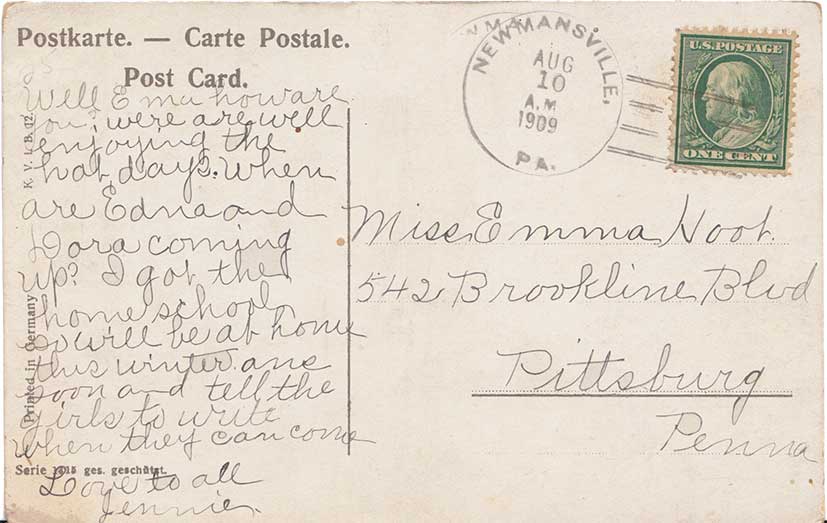 Postkarte. — Carte Postale.
Post Card.
Well Ema how are
you? were are well
enjoying the
hot days. When
are Edna and
Dora coming
up? I got the
home school
so will be at home
this winter. ans
soon and tell the
girls to write
when they can come
Love to all
Jennie.
K. V. i. B. 12.
Printed in Germany
Serie 1415 ges. geschützt.
NEWMANSVILLE,
AUG
10
A.M.
1909
PA.
U.S. POSTAGE
ONE CENT
Miss Emma Hoot.
542 Brookline Blvd
Pittsburg
Penna